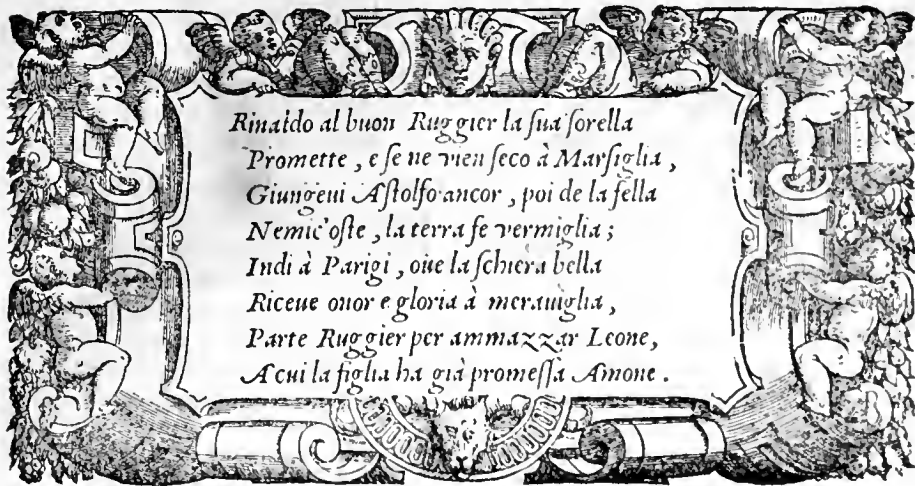 Rinaldo al buon Ruggier la ſua ſorella
Promette, e ſe ne vien ſeco à Marſiglia,
Giungeui Aſtolfo ancor, poi de la fella
Nemic'oſte, la terra fe vermiglia;
Indi à Parigi, oue la ſchiera bella
Riceue onor e gloria à merauiglia,
Parte Ruggier per ammazzar Leone,
A cui la figlia ha già promeſſa Amone.